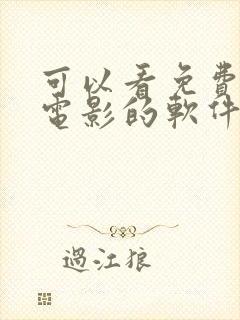 可以看免費
電影的軟件
過江狼